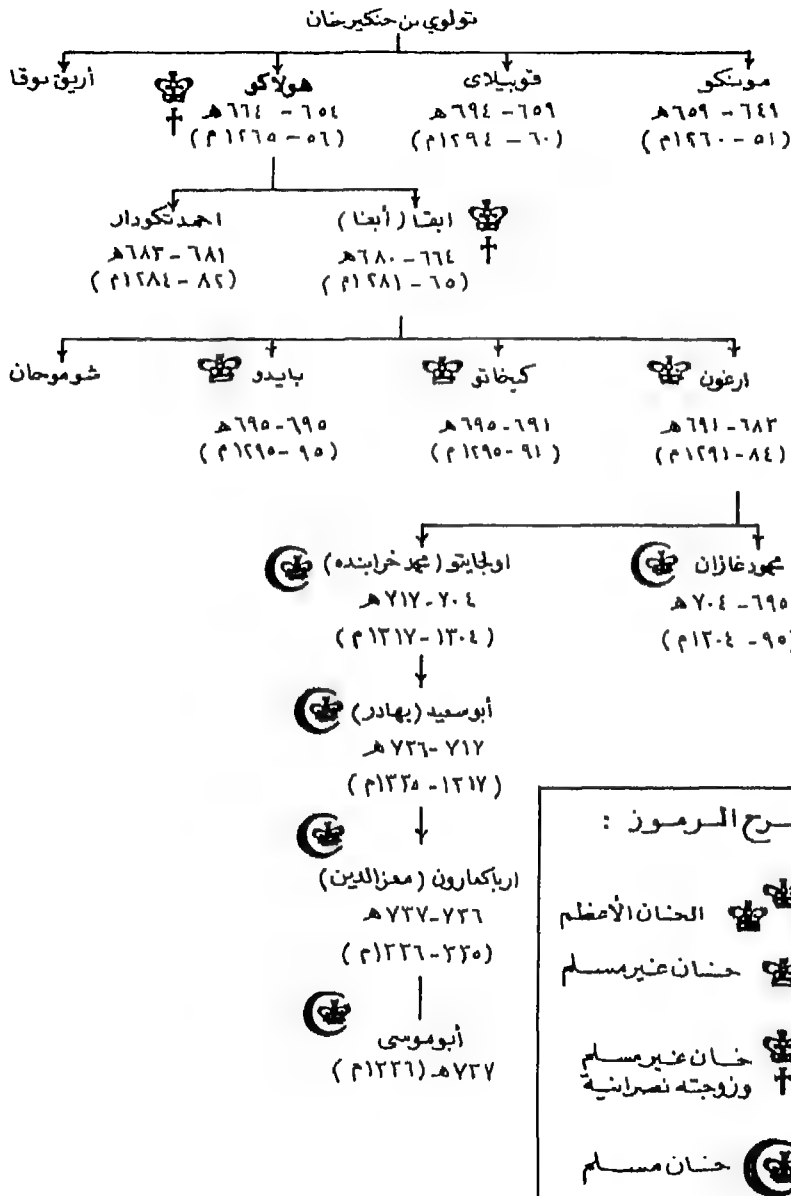 تولوي بن جنكيزخان
مونكو
٦٤٩ - ٦٥٩هـ
(٥١ - ١٢٦٠م)
قوبيلاى
٦٥٩ - ٦٩٤هـ
(٦٠ - ١٢٩٤م)
هولاكو
٦٥٤ - ٦٦٤هـ
(٥٦ - ١٢٦٥م)
أريق بوقا
ابقا (أبغا)
٦٦٤ - ٦٨٠هـ
(٦٥ - ١٢٨١م)
احمد تكودار
٦٨١ - ٦٨٣هـ
(٨٢ - ١٢٨٤م)
ارغون
٦٨٣ - ٦٩١هـ
(٨٤ - ١٢٩١م)
كيخاتو
٦٩١ - ٦٩٥هـ
(٩١ - ١٢٩٥م)
بايدو
٦٩٥ - ٦٩٥هـ
(٩٥ - ١٢٩٥م)
شوموجان
محمود غازان
٦٩٥ - ٧٠٤هـ
(٩٥ - ١٣٠٤م)
اولجايتو (محمد خرابنده)
٧٠٤ - ٧١٧هـ
(١٣٠٤ - ١٣١٧م)
أبوسعيد (بهادر)
٧١٧ - ٧٣٦هـ
(١٣١٧ - ١٣٣٥م)
ارباكمارون (معزالدين)
٧٣٦ - ٧٣٧هـ
(٣٣٥ - ١٣٣٦م)
أبوموسى
٧٣٧هـ (١٣٣٦م)
ـرح الرموز :
الخان الأعظم
خان غير مسلم
خان غير مسلم
وزوجته نصرانية
خان مسلم